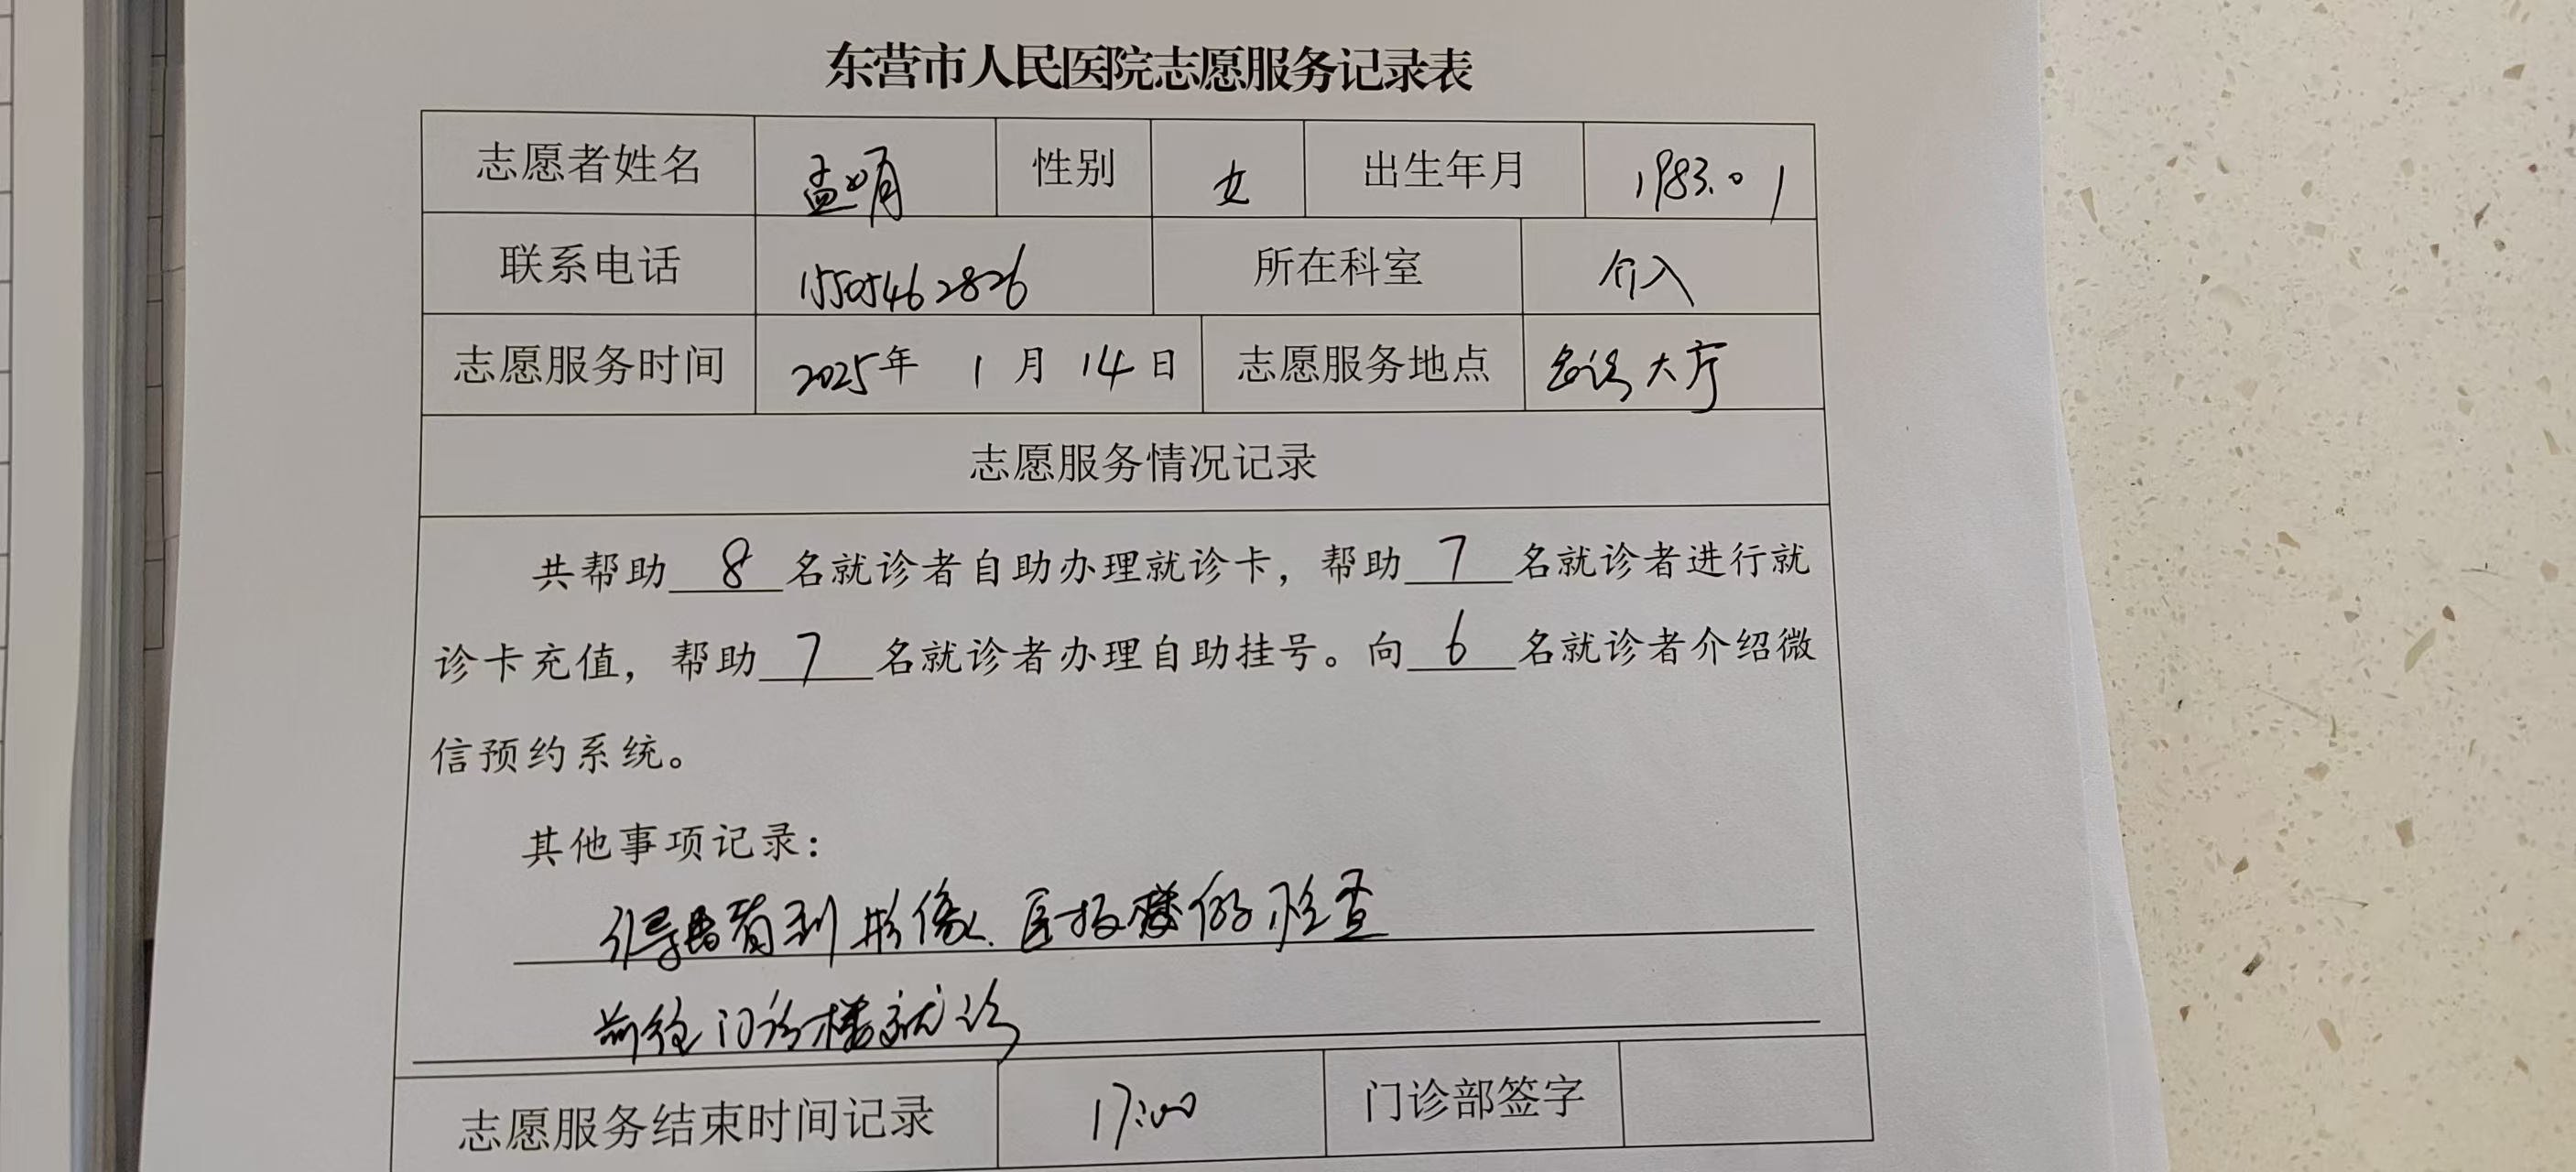 东营市人民医院志愿服务记录表
志愿者姓名 孟娟 性别 女 出生年月 1983.01
联系电话 15505462826 所在科室 介入
志愿服务时间 2025年 1月 14日 志愿服务地点 急诊大厅
志愿服务情况记录
共帮助 8 名就诊者自助办理就诊卡，帮助 7 名就诊者进行就
诊卡充值，帮助 7 名就诊者办理自助挂号。向 6 名就诊者介绍微
信预约系统。
其他事项记录：
引导患者到影像、医技楼做检查
前往门诊楼就诊
志愿服务结束时间记录 17:00 门诊部签字